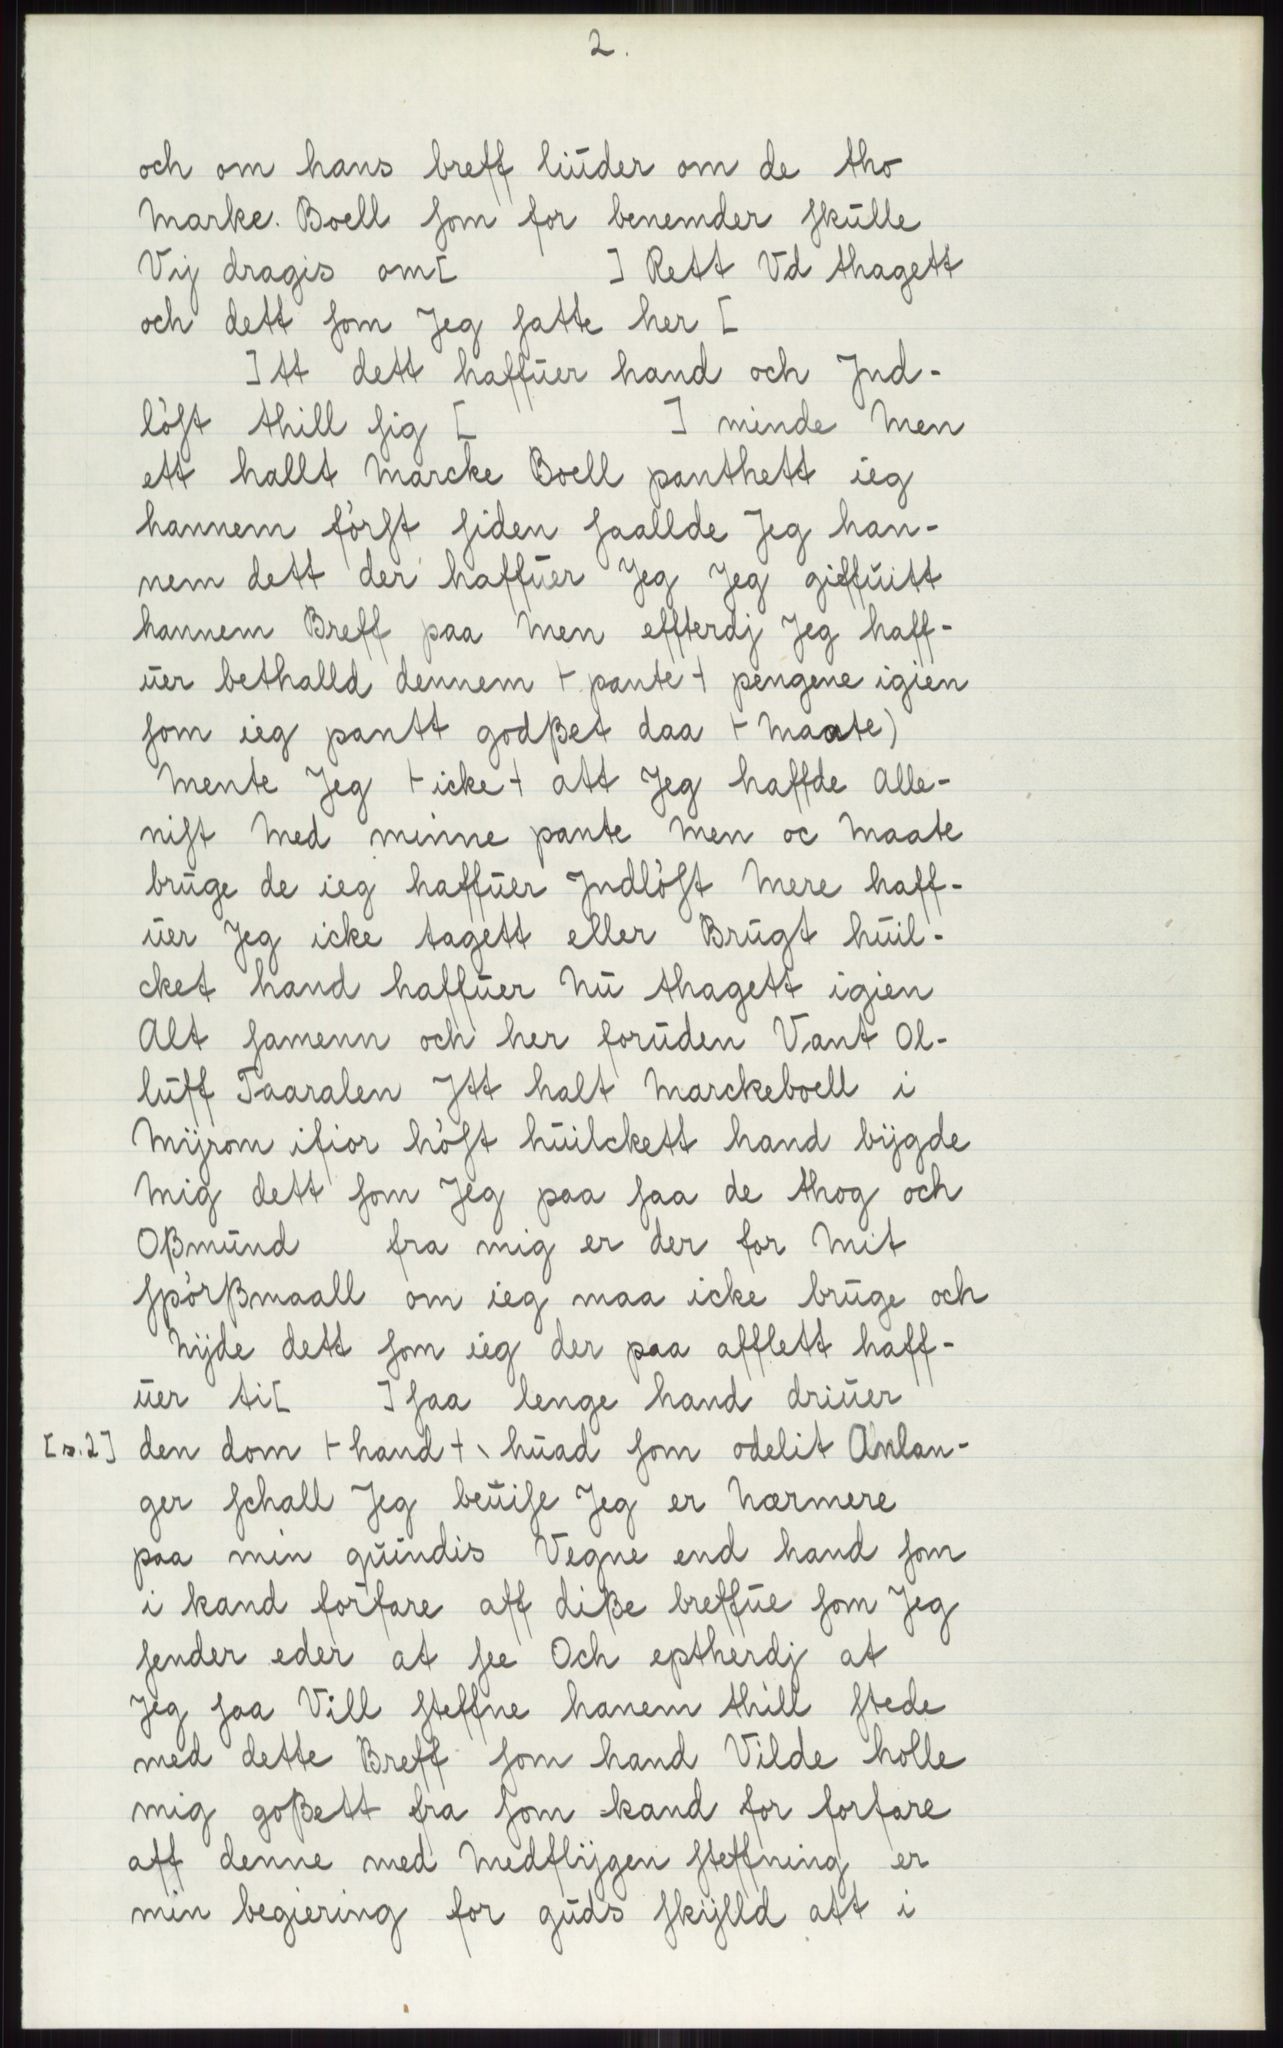 2.
och om hans breff liŭder om de tho
Marke. Boell som for benemder skŭlle
Vij dragis om[ ] Rett Vd thagett
och dett som Jeg satte her [
]tt dett haffŭer hand och Jnd-
lóst thill sig [ ] minde Men
ett hallt Marcke Boell panthett ieg
hannem fórst siden saallde Jeg han-
nem dett der haffŭer Jeg Jeg giffŭitt
hannem Breff paa Men effterdj Jeg haff-
ŭer bethalld dennem ⊢ pante ⊣ pengene igien
som ieg pantt godßet daa ⊢ Maate)
Mente Jeg ⊢ icke ⊣ att Jeg haffde Alle-
nist Med minne pante Men oc Maate
brŭge de ieg haffŭer Jndlóst Mere haff-
ŭer Jeg icke tagett eller Brŭgt hŭil-
cket hand haffŭer Nŭ thagett igien
Alt samenn och her forŭden Vant Ol-
lŭff Taaralen Jtt halt Marckeboell i
Mÿrom ifior hóst hŭilckett hand bÿgde
Mig dett som Jeg paa saa de thog och
Oßmŭnd fra mig er der for Mit
spórßmaall om ieg maa icke brŭge och
Nÿde dett som ieg der paa afflett haff-
ŭer ti[ ] saa lenge hand driŭer
[s. 2] den dom ⊢ hand ⊣ \ hŭad som odelit Anlan-
ger schall Jeg beŭise Jeg er Nærmere
paa min qŭindis Vegne end hand som
i kand forfare aff diße breffŭe som Jeg
sender eder at see Och eptherdj at
Jeg saa Vill steffne hanem thill stede
med dette Breff som hand Vilde holle
mig goßett fra som kand for forfare
aff denne med Medflÿgen steffning er
min begiering for gŭds skÿlld att i